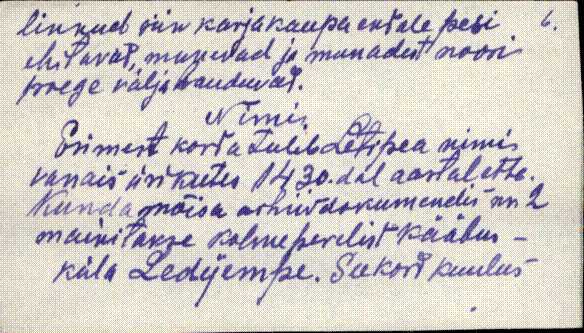 linnud siin karjakaupa endale pesi 6.
ehitavad, munevad ja munadest noori
poege välja hauduvad.
Nimi.
Esimest korda tuleb Letipea nimi
vanais ürikutes 1430.dal aastal ette.
Kunda mõisa arhiivdokumendis nr. 2
mainitakse kolmeperelist kääbus-
küla Ledijempe. Seekord kuulus